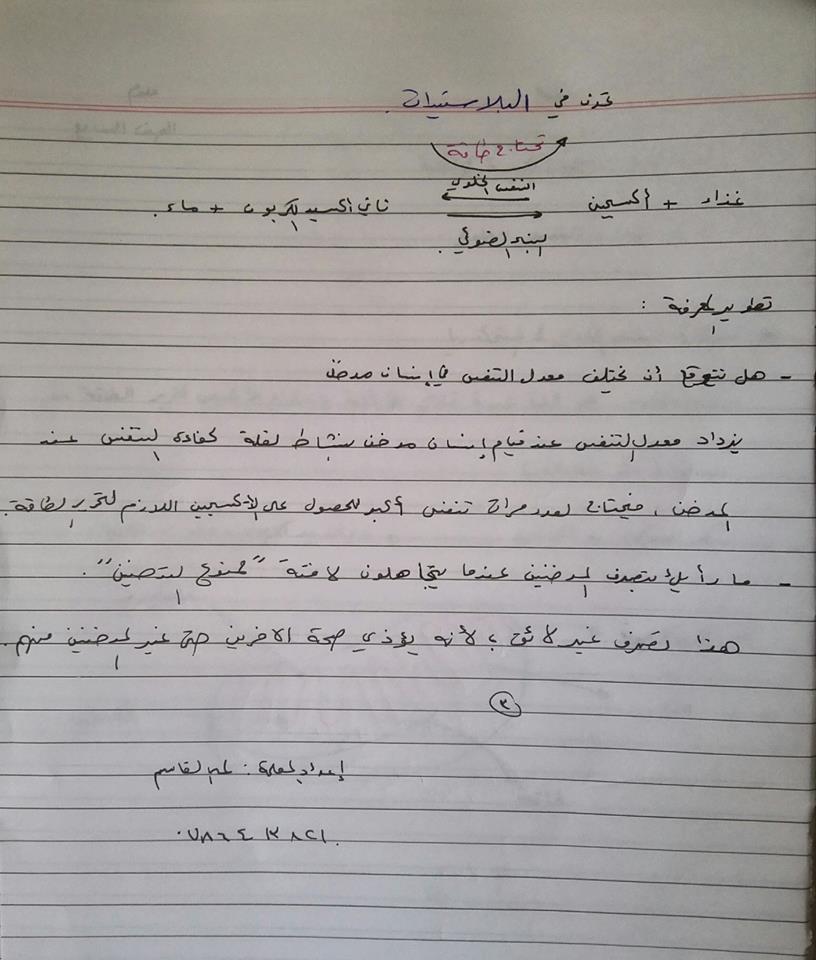 تحدث في البلاستيدات.
تحتاج طاقة
التنفس الخلوي
غذاء + أكسجين ثاني أكسيد الكربون + ماء.
البناء الضوئي.
تطوير المعرفة :
- هل نتوقع أن يختلف معدل التنفس في إنسان مدخن
يزداد معدل التنفس عند قيام إنسان مدخن بنشاط لقلة كفاءة التنفس عند
المدخن، فيحتاج لعدد مرات تنفس أكبر للحصول على الأكسجين اللازم لتحرر الطاقة.
- ما رأيك بتصرف المدخنين عندما يتجاهلون لافتة "ممنوع التدخين".
هذا تصرف غير لائق، لأنه يؤذي صحة الآخرين حتى غير المدخنين منهم.
٣
إعداد المعلمة: القاسم